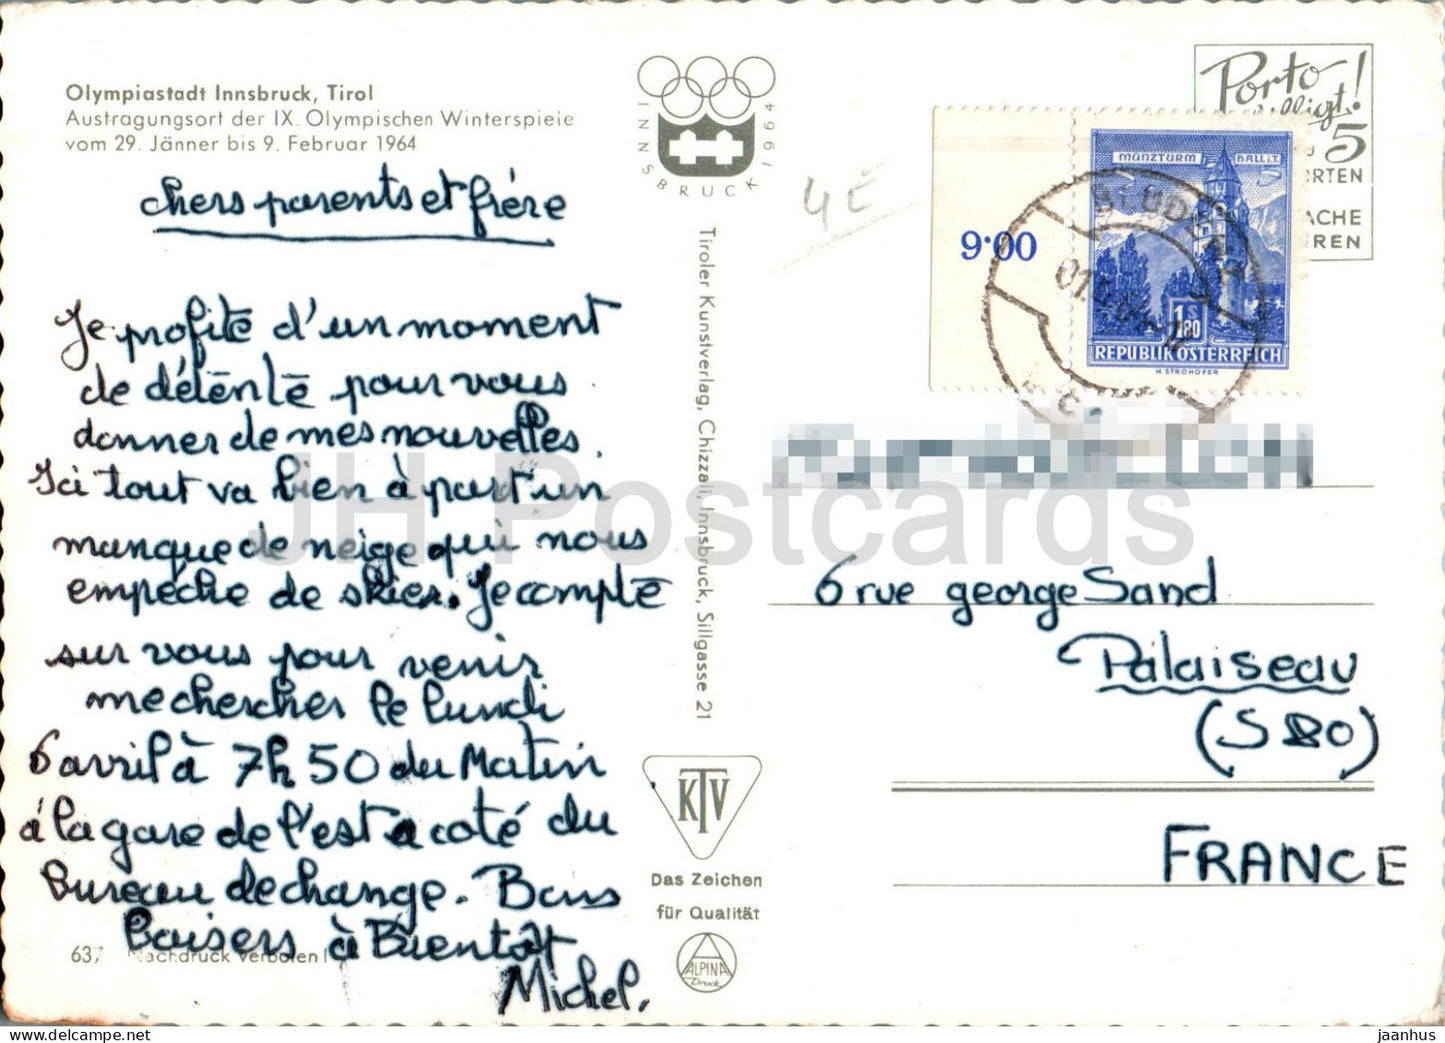 Olympiastadt Innsbruck, Tirol
Austragungsort der IX. Olympischen Winterspiele
vom 29. Jänner bis 9. Februar 1964
INNSBRUCK 1964
chers parents et frère
Je profite d'un moment
de détente pour vous
donner de mes nouvelles.
Ici tout va bien à part un
manque de neige qui nous
empêche de skier. Je compte
sur vous pour venir
me chercher le lundi
6 avril à 7h 50 du Matin
à la gare de l'est a coté du
Bureau de change. Bons
baisers à Bientôt
Michel.
637 Nachdruck verboten!
Tiroler Kunstverlag, Chizzali, Innsbruck, Sillgasse 21
KTV
Das Zeichen
für Qualität
ALPINA
Druck
4 E
Porto
5
RTEN
ACHE
REN
9·00
MÜNZTURM HALL I.T.
1.80
S
REPUBLIK ÖSTERREICH
H. STROHOFER
6 rue george Sand
Palaiseau
(S & O)
FRANCE
JH Postcards
jaanhus